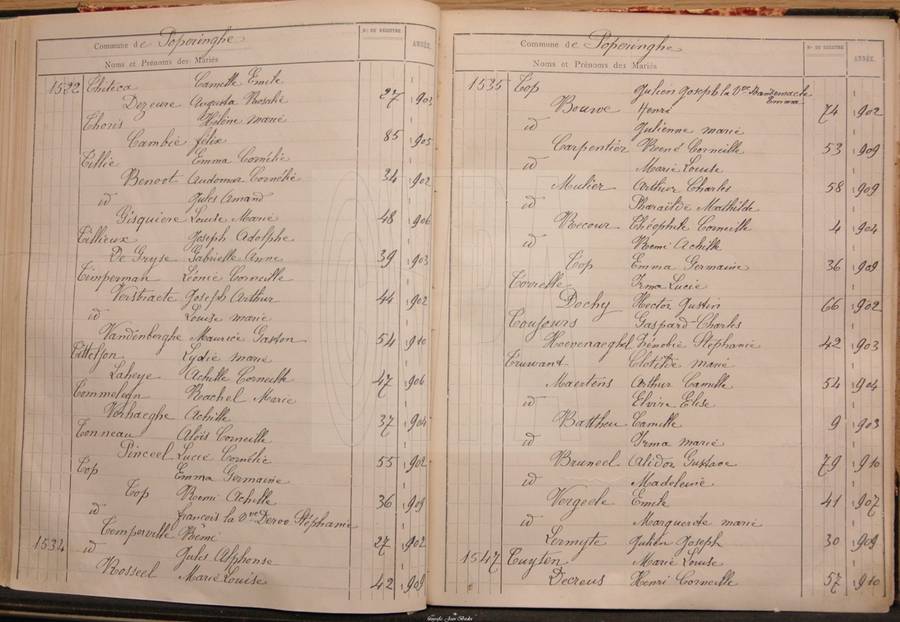 Commune de Poperinghe
N° DU REGISTRE
ANNÉE
Noms et Prénoms des Mariés
1522 Thiteca Camille Emile
Dezeure Augusta Rosalie 27 1903
Thoris Hélène Marie
Cambié félix 85 1905
Tillie Emma Cornélie
Benoot Audomar Cornélie 34 1902
id Jules Amand
Gisquière Louise Marie 48 1906
Tillieux Joseph Adolphe
De Gryse Gabrielle Anna 39 1903
Timperman Léonie Corneille
Verstraete Joseph Arthur 44 1902
id Louise marie
Vandenberghe Maurice Gaston 54 1910
Tittelson Lydie marie
Laheye Achille Corneille 47 1906
Tommelein Rachel Marie
Verhaeghe Achille 37 1904
Tonneau Aloïs Corneille
Pinceel Lucie Cornélie 55 1902
Top Emma Germaine
Top Remi Achille 36 1909
id françois la Vve Deroo Stéphanie
Temperville Rémi 27 1902
1534 id Jules Alphonse
Rosseel Marie Louise 42 1905
Commune de Poperinghe
N° DU REGISTRE
ANNÉE
Noms et Prénoms des Mariés
1535 Top Julien Joseph la Vve Emma
Bouve Henri 74 1902
id Julienne marie
Carpentier René Corneille 53 1909
id Marie Louise
Mulier Arthur Charles 58 1909
id Pharaïlde Mathilde
Recour Théophile Corneille 4 1904
id Remi Achille
Top Emma Germaine 36 1909
Torrelle Irma Lucie
Dochy Hector Justin 66 1902
Toujours Gaspard Charles
Hoevenaeghel Zénobie Stéphanie 42 1903
Truwant Clotilde marie
Maertens Arthur Camille 54 1904
id Elvire Elise
Battheu Camille 9 1903
id Irma marie
Bruneel Alidor Gustave 79 1910
id Madeleine
Vergeele Emile 41 1907
id Marguerite marie
Lermyte Julien Joseph 30 1909
1547 Tuyten Marie Louise
Decreus Henri Corneille 57 1910